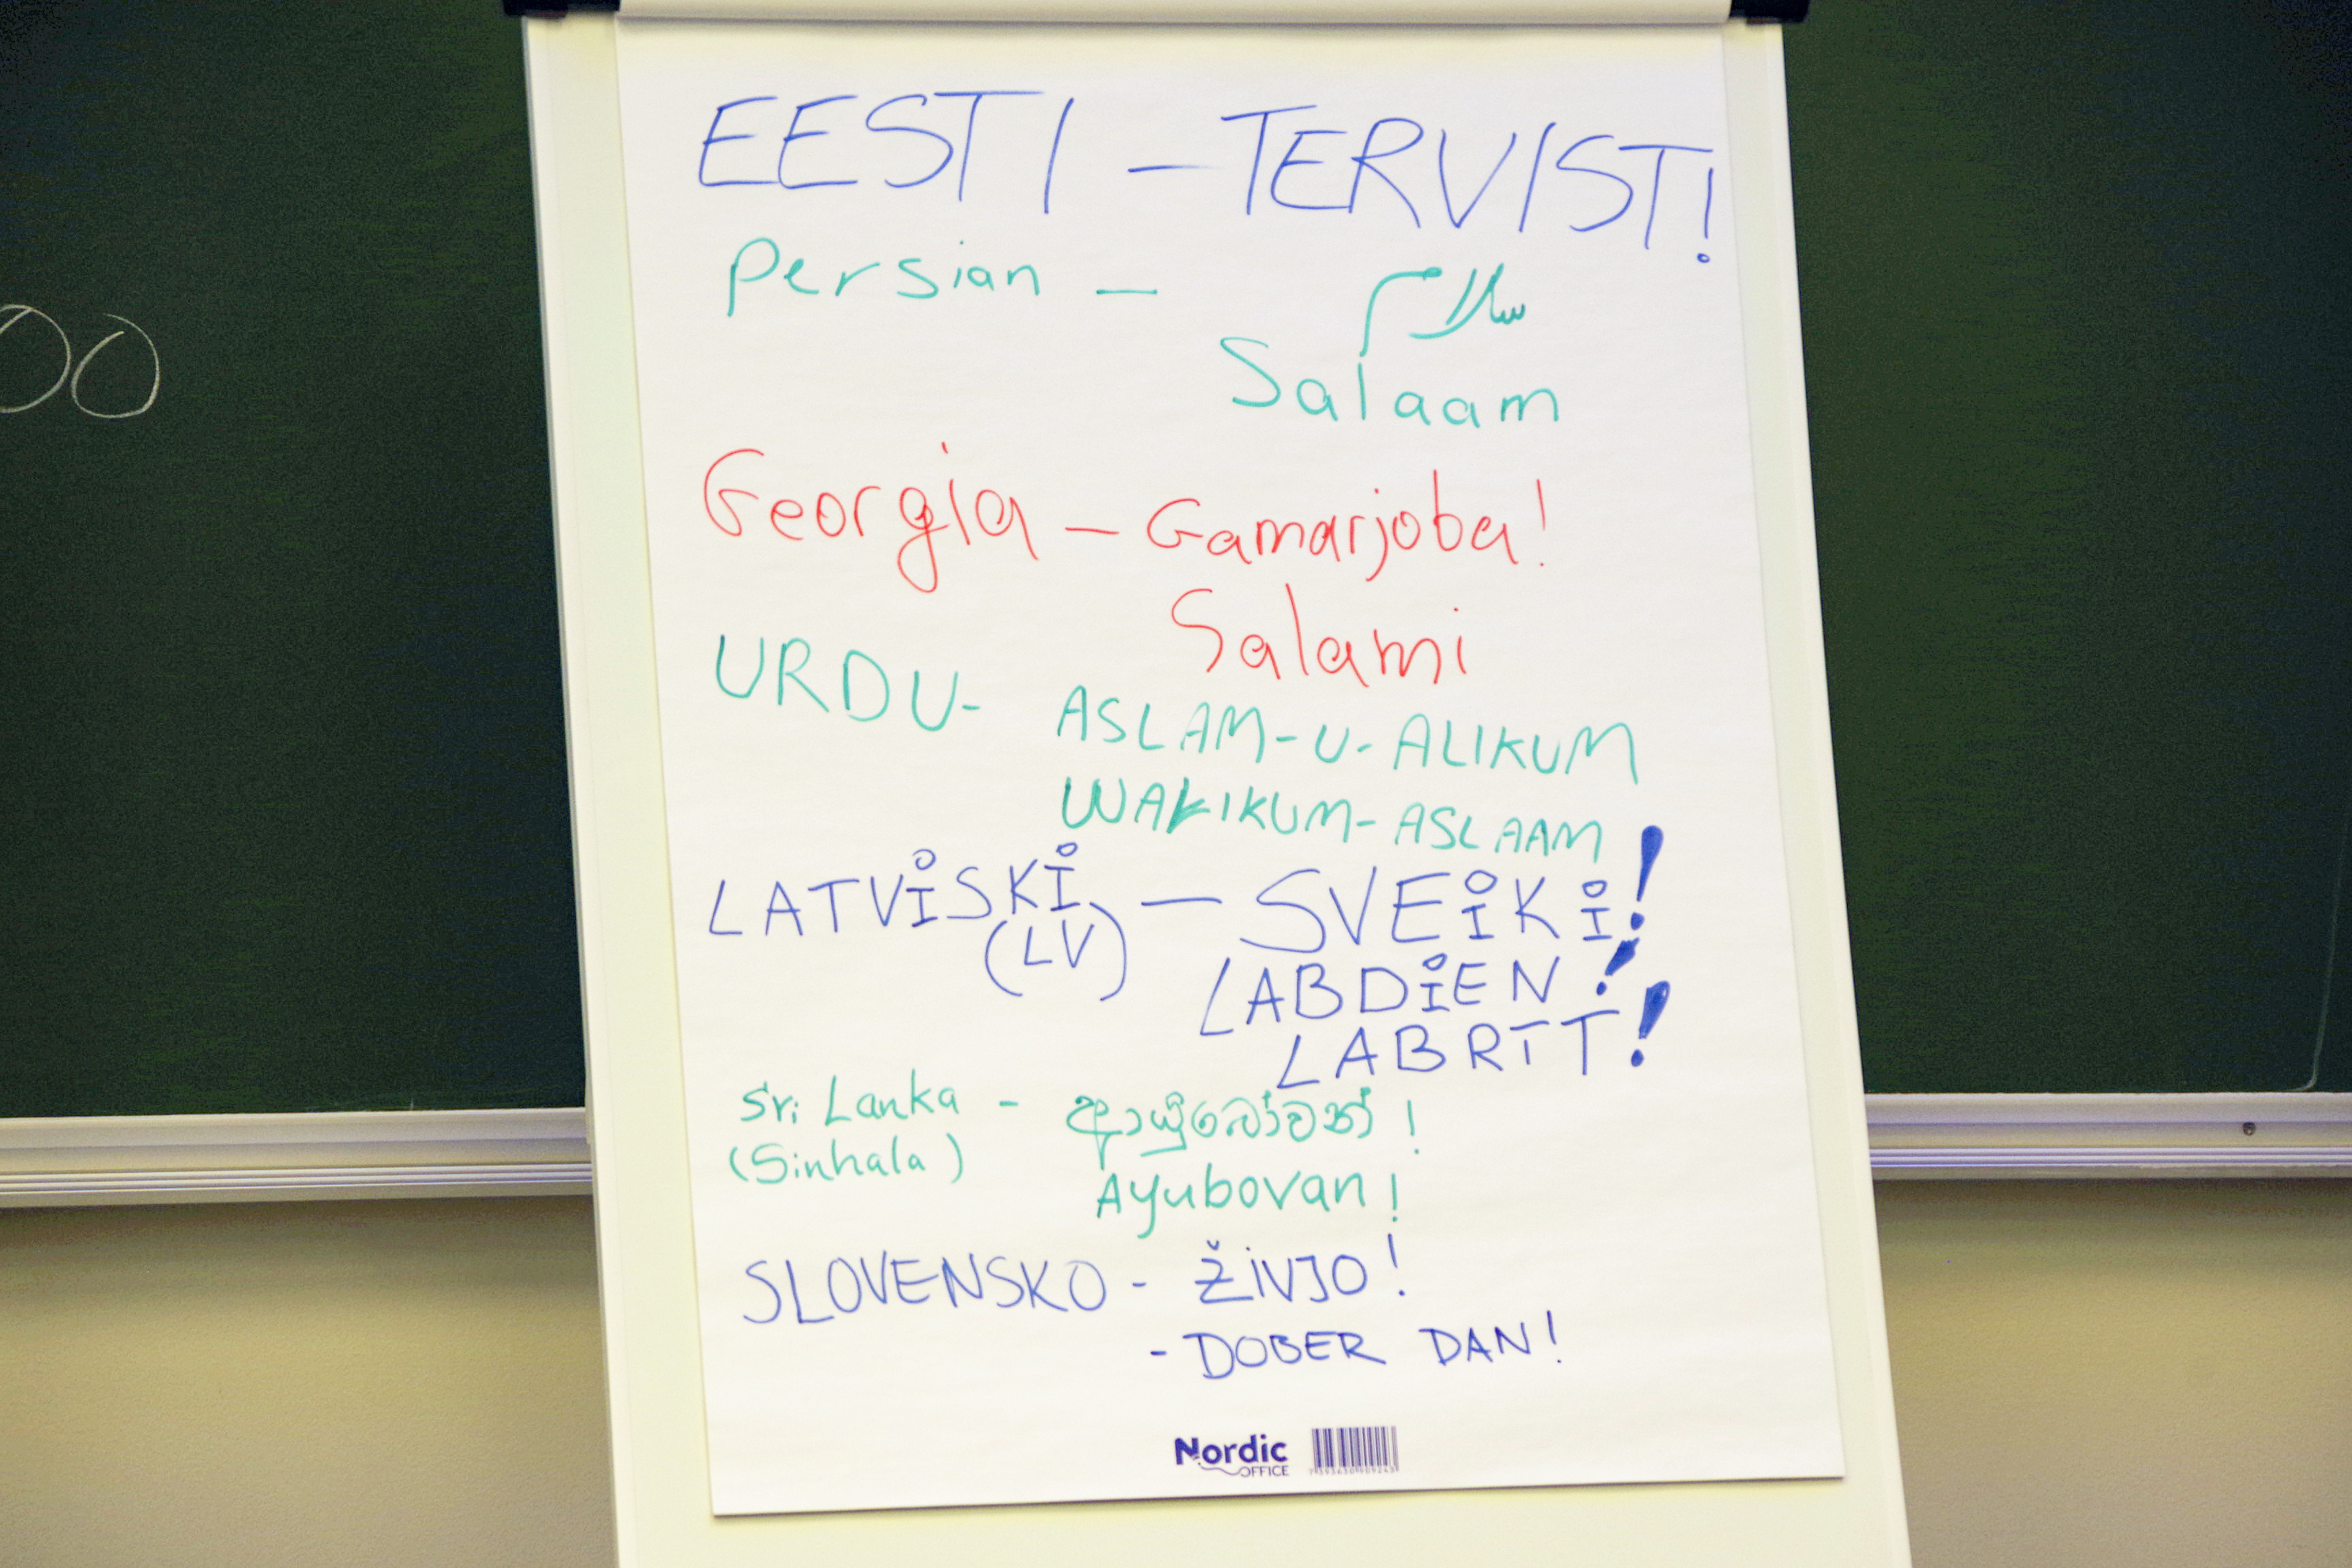 00
EESTI - TERVIST!
Persian - سلام
Salaam
Georgia - Gamarjoba!
Salami
URDU- ASLAM-U-ALIKUM
WALIKUM-ASLAAM
LATVISKI - SVEIKI!
(LV)
LABDIEN!
LABRĪT!
Sri Lanka - ආයුබෝවන් !
(Sinhala)
Ayubovan!
SLOVENSKO - ŽIVJO!
- DOBER DAN!
Nordic
OFFICE